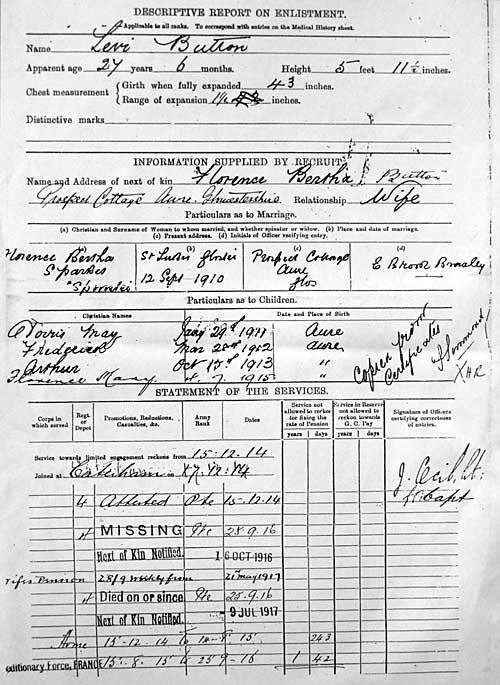 DESCRIPTIVE REPORT ON ENLISTMENT.
Applicable to all ranks. To correspond with entries on the Medical History sheet.
Name Levi Button
Apparent age 27 years 6 months. Height 5 feet 11½ inches.
Chest measurement { Girth when fully expanded 43 inches.
Range of expansion 1½ inches.
Distinctive marks
INFORMATION SUPPLIED BY RECRUIT.
Name and Address of next of kin Florence Bertha Button
Prospect Cottage Awre Gloucestershire Relationship Wife
Particulars as to Marriage.
(a) Christian and Surname of Woman to whom married, and whether spinster or widow. (b) Place and date of marriage.
(c) Present address. (d) Initials of Officer verifying entry.
(b) (c) (d)
Florence Bertha St Lukes Gloster Prospect Cottage
Sparkes 12 Sept 1910 Awre E Brook Bromley
"Spinster" Glos
Particulars as to Children.
Christian Names Date and Place of Birth
Dorris May Jany 29th 1911 Awre
Frederick Mar 28th 1912 Awre
Arthur Oct 17th 1913 "
Florence Mary 7. 1915 "
Copied from
Certificates
STATEMENT OF THE SERVICES.
Corps in which served Regt. or Depot Promotions, Reductions, Casualties, &c. Army Rank Dates Service not allowed to reckon for fixing the rate of Pension Service in Reserve not allowed to reckon towards G. C. Pay Signature of Officers certifying correctness of entries.
years days years days
Service towards limited engagement reckons from 15-12-14
Joined at
4 Attested Pte 15-12-14
Capt
4 MISSING Pte 28-9-16
Next of Kin Notified. 16 OCT 1916
Pension 28/9 weekly from 21st May 1917
4 Died on or since Pte 25-9-16
Next of Kin Notified. -9 JUL 1917
Home 15-12-14 to 14-8-15 243
Expeditionary Force, FRANCE 15-8-15 to 25-9-16 1 42